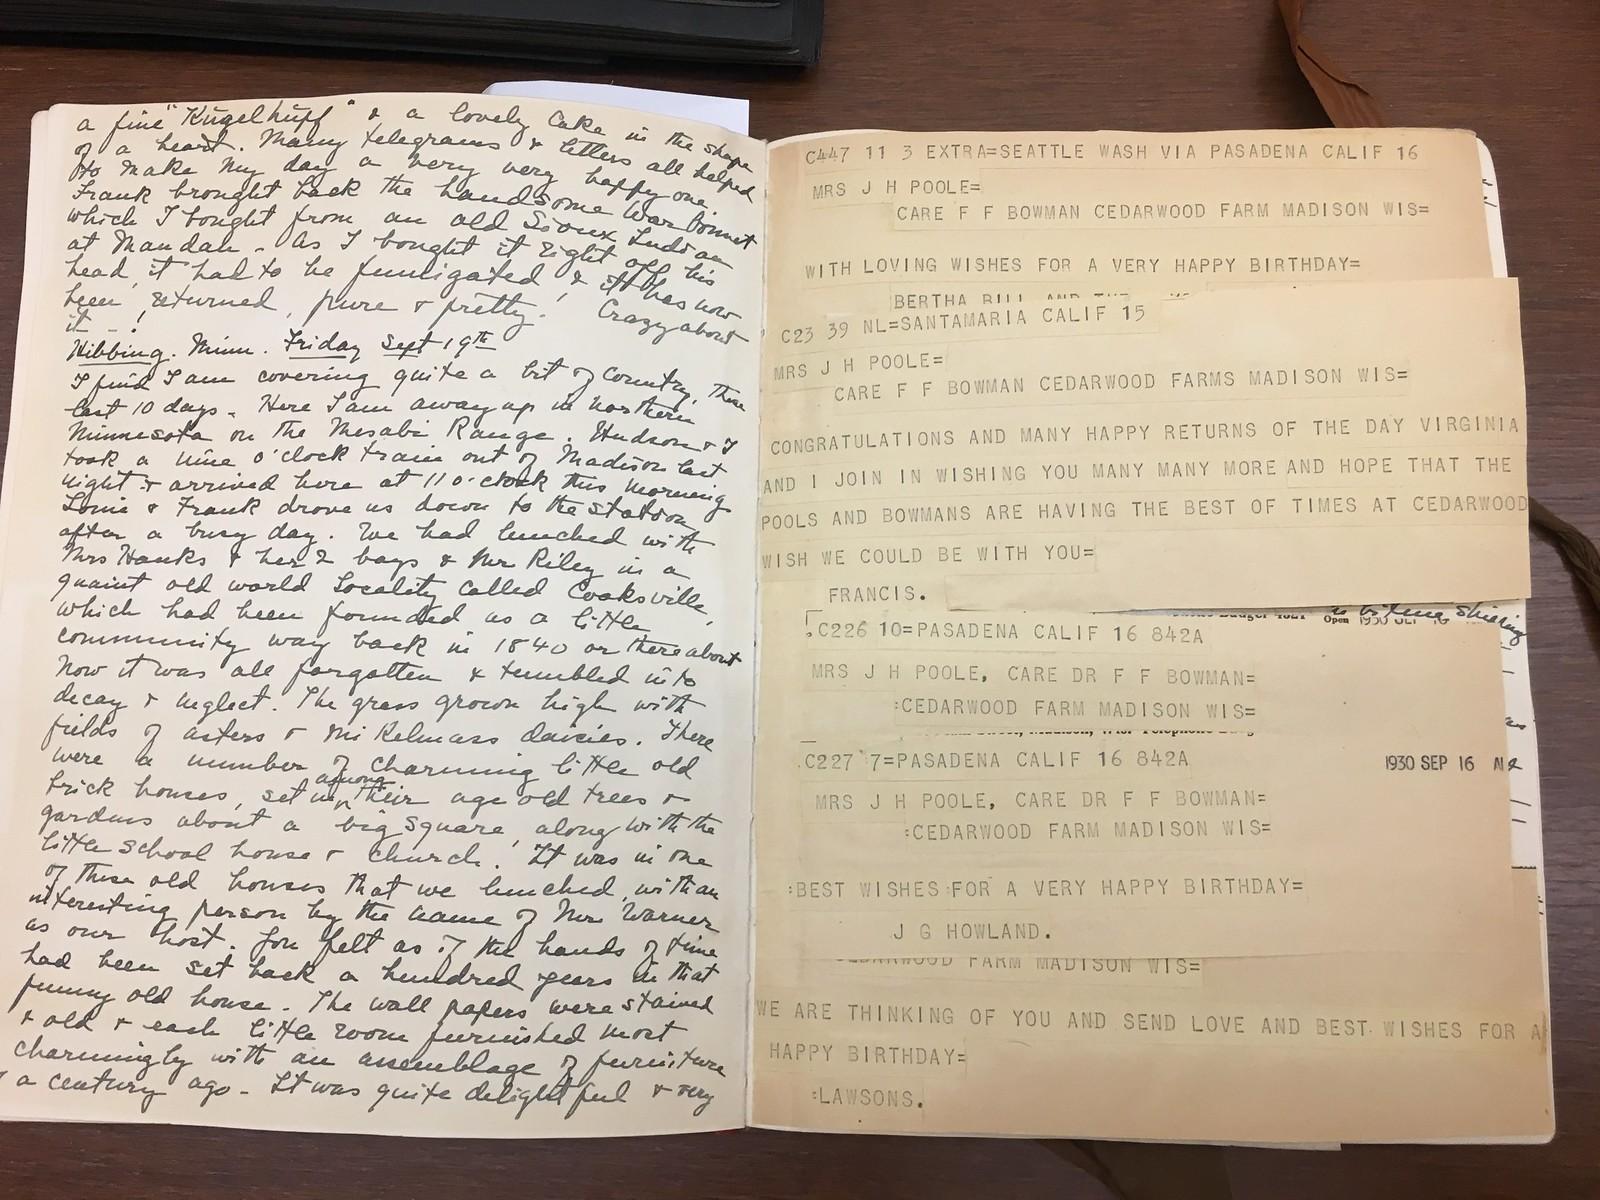 a fine "Kugelhupf" & a lovely cake in the shape
of a heart. Many telegrams & letters all helped
to make my day a very very happy one.
Frank brought back the handsome War Bonnet
which I bought from an old Sioux Indian
at Mandan - As I bought it right off his
head, it had to be fumigated & it has now
been returned, pure & pretty! Crazy about
it - !
Hibbing. Minn. Friday Sept 19th
I find I am covering quite a bit of country, these
last 10 days. Here I am away up in northern
Minnesota on the Mesabi Range. Hudson & I
took a nine o'clock train out of Madison last
night & arrived here at 11 o'clock this morning
Lonie & Frank drove us down to the station
after a busy day. We had lunched with
Mrs Hanks & her 2 boys & Mr Riley in a
quaint old world locality called Cooksville,
which had been founded as a little
community way back in 1840 or thereabout
Now it was all forgotten & tumbled into
decay & neglect. The grass grown high with
fields of asters & Mikelmass daisies. There
were a number of charming little old
brick houses, set in among their age old trees &
gardens about a big square, along with the
little school house & church. It was in one
of these old houses that we lunched, with an
interesting person by the name of Mr Warner
as our host. You felt as if the hands of time
had been set back a hundred years in that
funny old house. The wall papers were stained
& old & each little room furnished most
charmingly with an assemblage of furniture
of a century ago - It was quite delightful & very
C447 11 3 EXTRA=SEATTLE WASH VIA PASADENA CALIF 16
MRS J H POOLE=
CARE F F BOWMAN CEDARWOOD FARM MADISON WIS=
WITH LOVING WISHES FOR A VERY HAPPY BIRTHDAY=
BERTHA BILL AND
C23 39 NL=SANTAMARIA CALIF 15
MRS J H POOLE=
CARE F F BOWMAN CEDARWOOD FARMS MADISON WIS=
CONGRATULATIONS AND MANY HAPPY RETURNS OF THE DAY VIRGINIA
AND I JOIN IN WISHING YOU MANY MANY MORE AND HOPE THAT THE
POOLS AND BOWMANS ARE HAVING THE BEST OF TIMES AT CEDARWOOD
WISH WE COULD BE WITH YOU=
FRANCIS.
Open 1930
C226 10=PASADENA CALIF 16 842A
MRS J H POOLE, CARE DR F F BOWMAN=
:CEDARWOOD FARM MADISON WIS=
C227 7=PASADENA CALIF 16 842A
1930 SEP 16
MRS J H POOLE, CARE DR F F BOWMAN=
:CEDARWOOD FARM MADISON WIS=
:BEST WISHES FOR A VERY HAPPY BIRTHDAY=
J G HOWLAND.
CEDARWOOD FARM MADISON WIS=
WE ARE THINKING OF YOU AND SEND LOVE AND BEST WISHES FOR A
HAPPY BIRTHDAY=
:LAWSONS.